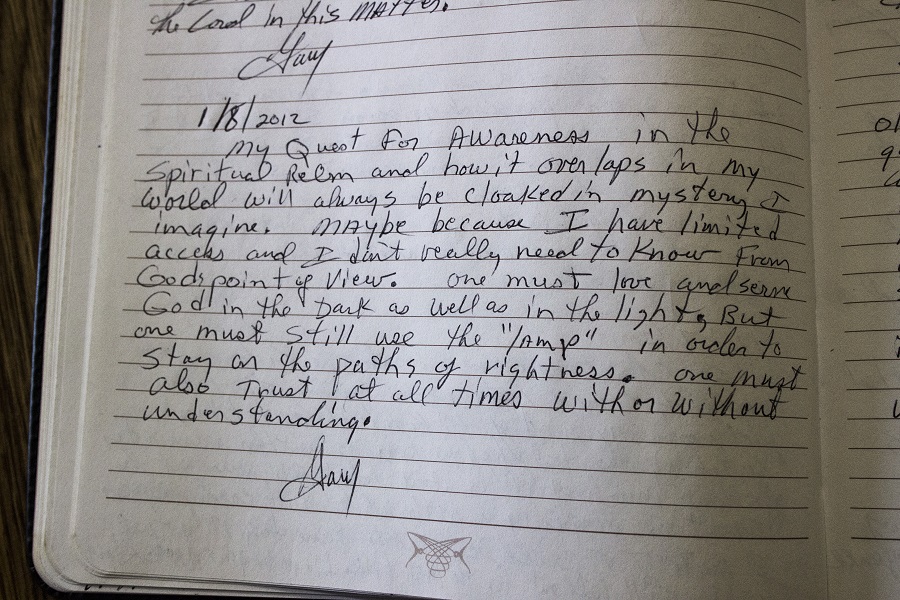 the Lord in this matter.
Gary
1/8/2012
My Quest For Awareness in the
Spiritual Relm and how it overlaps in my
world will always be cloaked in mystery I
imagine. Maybe because I have limited
access and I don't really need to know From
Gods point of View. one must love and serve
God in the Dark as well as in the light, But
one must still use the "lamp" in order to
stay on the paths of rightness. one must
also Trust at all times with or without
understanding.
Gary